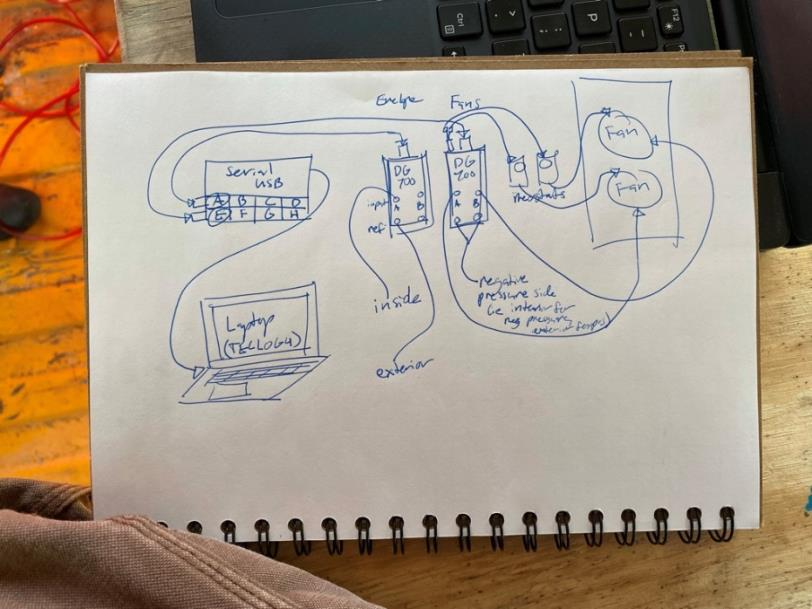 Envelope
Fans
serial
USB
A B C D
E F G H
DG
700
input A B
ref
DG
700
A B
rheostats
Fan
Fan
inside
exterior
negative
pressure side
(ie interior for
neg pressure,
exterior for pos)
Laptop
(TECLOG4)
Ctrl
P
F12